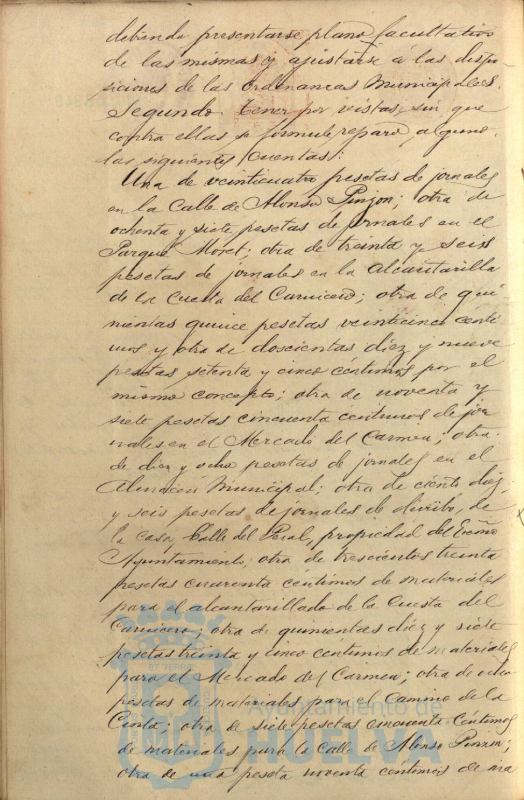 debiendo presentarse plano facultativo
de las mismas y ajustarse á las dispo
siciones de las Ordenanzas Municipales.
Segundo tener por vistas, sin que
contra ellas se formule reparo alguno
las siguientes cuentas:
Una de veinticuatro pesetas de jornales
en la Calle de Alonso Pinzon; otra de
ochenta y siete pesetas de jornales en el
Parque Moret; otra de treinta y seis
pesetas de jornales en la alcantarilla
de la Cuesta del Carnicero; otra de qui
nientas quince pesetas veinticinco centi
mos y otra de doscientas diez y nueve
pesetas setenta y cinco céntimos por el
mismo concepto; otra de noventa y
siete pesetas cincuenta centimos de jor
nales en el Mercado del Carmen; otra
de diez y ocho pesetas de jornales en el
Almacen Municipal; otra de ciento diez
y seis pesetas de jornales de derribo, de
la casa, Calle del Peral, propiedad del Excmo
Ayuntamiento; otra de trescientas treinta
pesetas cuarenta centimos de materiales
para el alcantarillado de la Cuesta del
Carnicero; otra de quinientas diez y siete
pesetas treinta y cinco centimos de materiales
para el Mercado del Carmen; otra de ocho
pesetas de materiales para el Camino de la
Cinta; otra de siete pesetas cincuenta céntimos
de materiales para la calle de Alonso Pinzon;
otra de una peseta noventa céntimos de ma
Ayuntamiento de
HUELVA